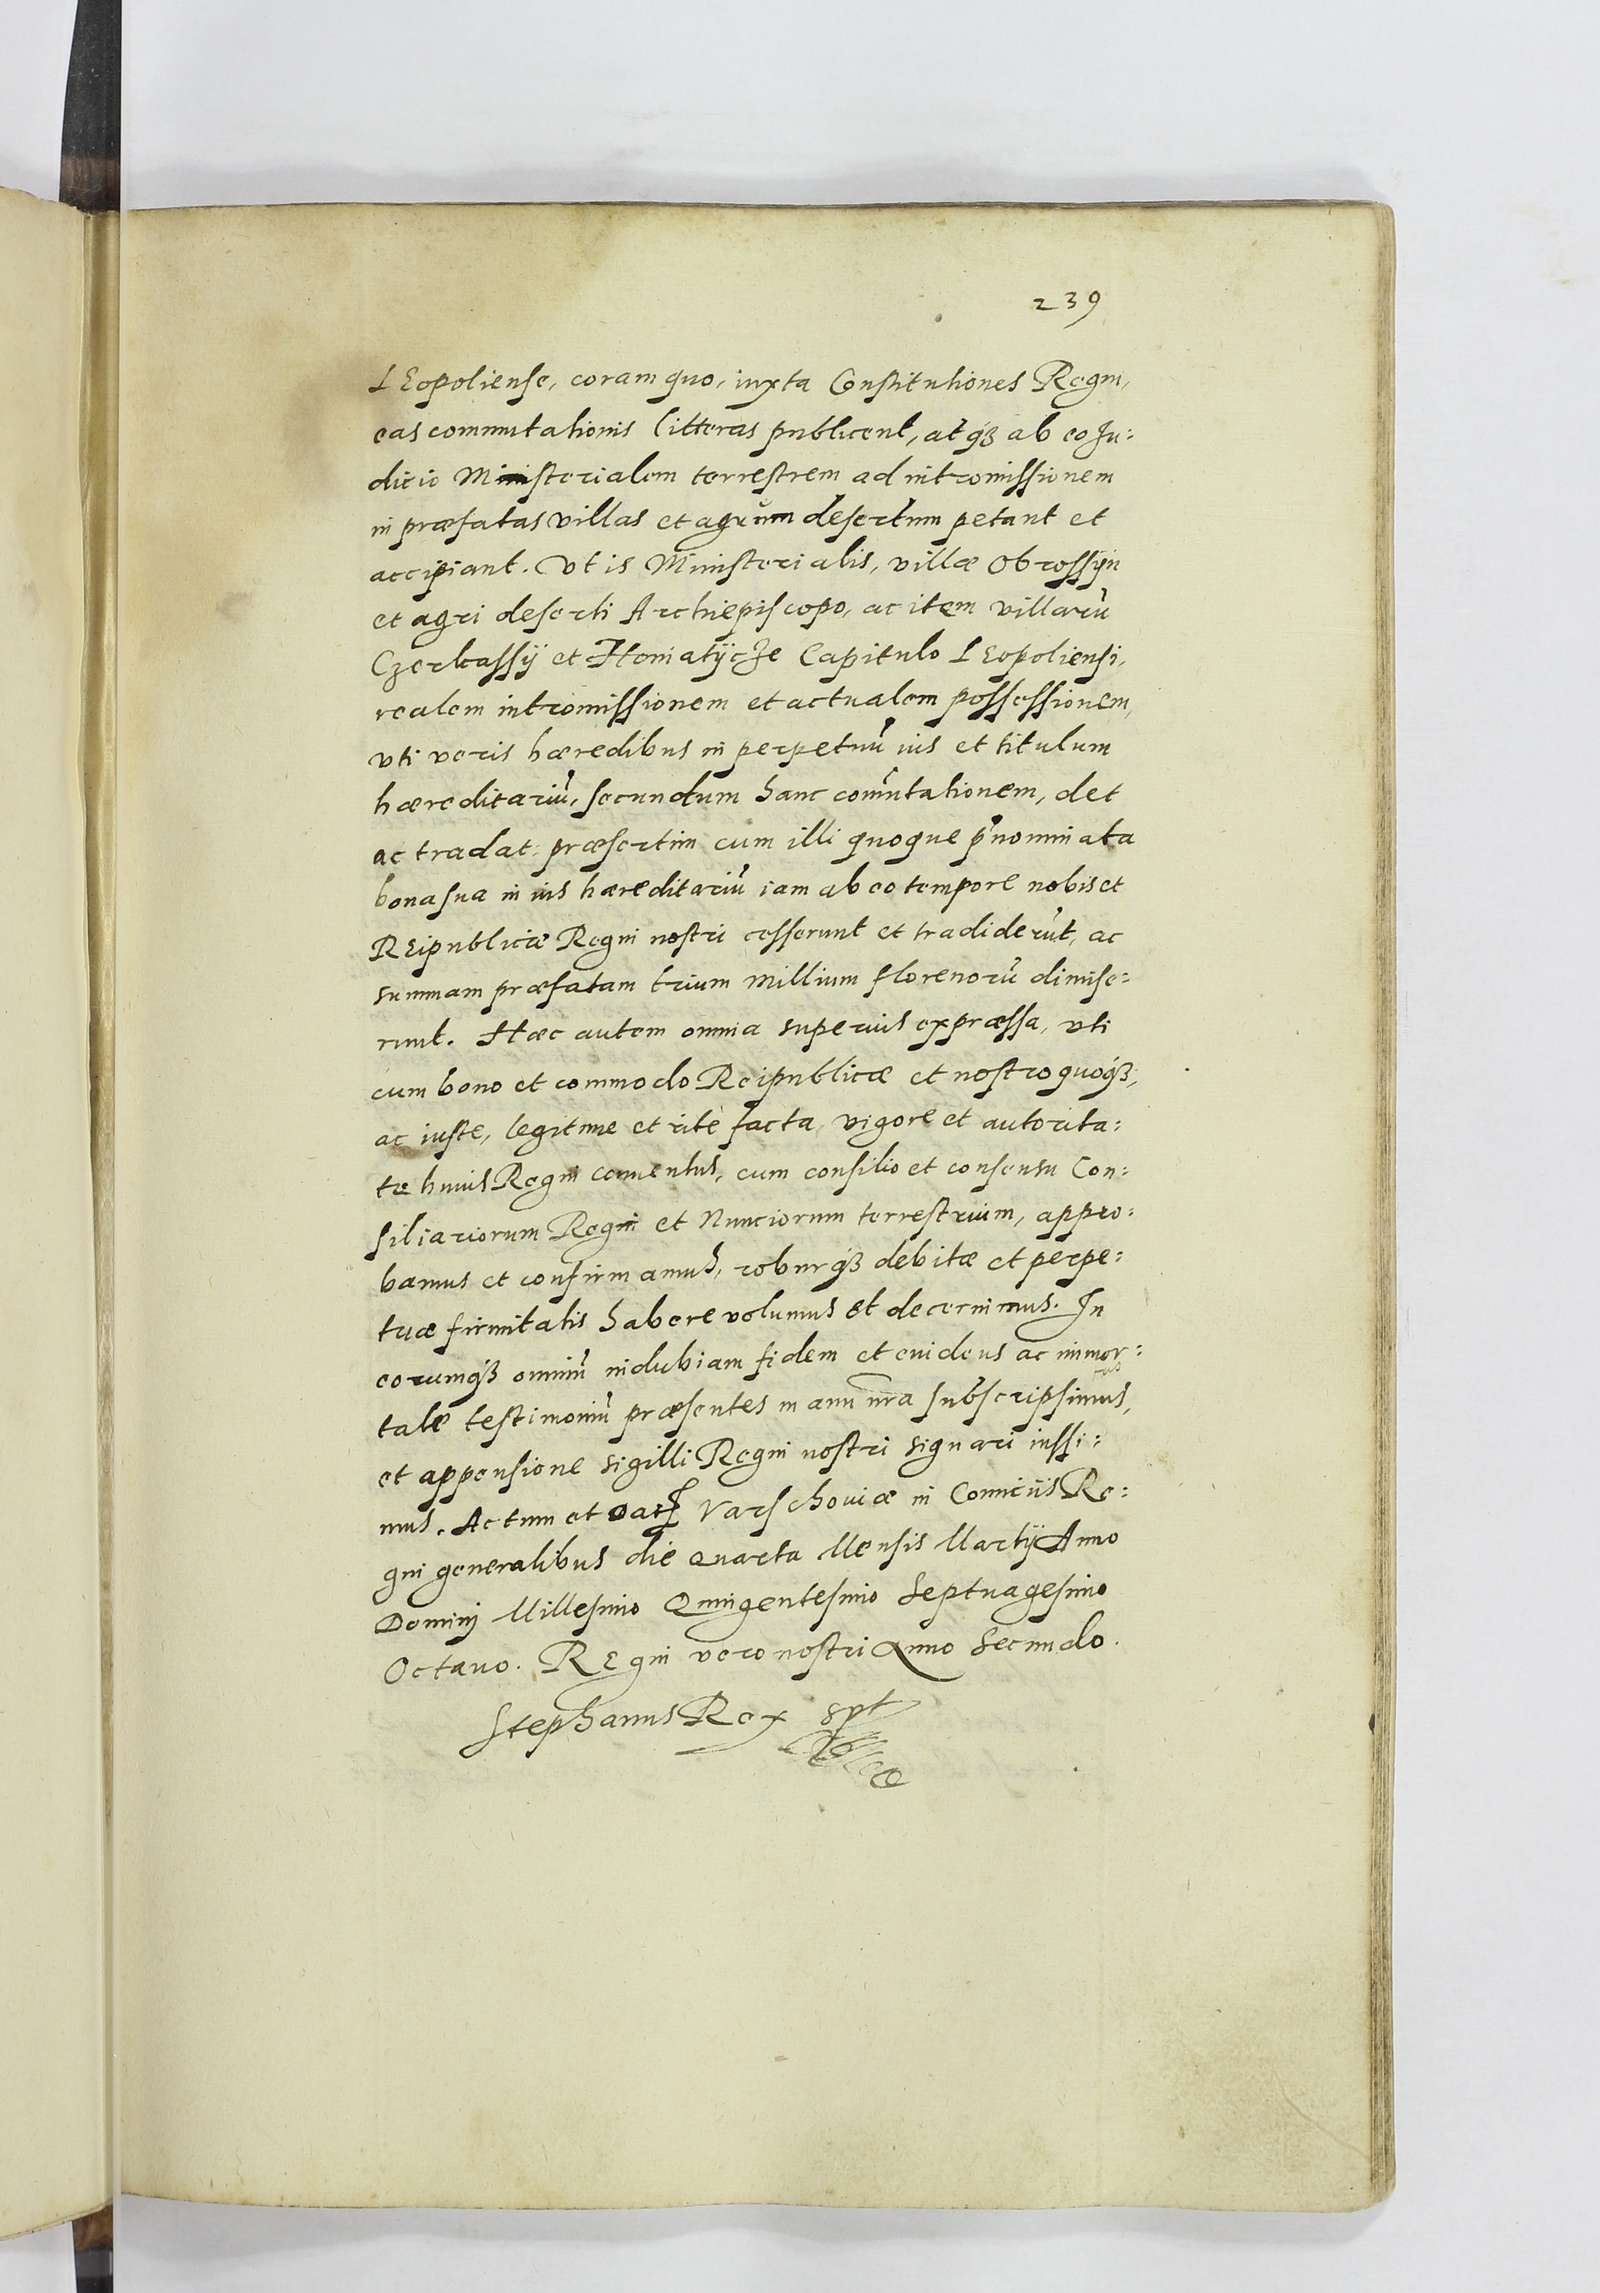 239
LEopoliense, coram quo, iuxta Constitutiones Regni,
eas commutationis litteras publicent, atqȝ ab eo Ju:
dicio Ministerialem terrestrem ad intromissionem
in præfatas villas et agrum desertum petant et
accipiant. Vt is Ministerialis, villæ Obrossyn
et agri deserti Archiepiscopo, ac item villarū
Czerkassÿ et Honiatÿcze Capitulo LEopoliensi,
realem intromissionem et actualem possessionem,
vti veris hæredibus in perpetuū ius et titulum
hæreditariū, secundum hanc com̄utationem, det
ac tradat: præsertim cum illi quoque p̄nominata
bona sua in ius hæreditariū iam ab eo tempore nobis et
REipublicæ Regni nostri cesserunt et tradiderūt, ac
summam præfatam trium millium florenorū dimise:
runt. Hæc autem omnia superius expræssa, vti
cum bono et commodo Reipublicæ et nostro quoqȝ,
ac iuste, legitime et ritè facta, vigore et autorita:
te huius Regni conuentus, cum consilio et consensu Con:
siliariorum Regni et Nunciorum terrestrium, appro:
bamus et confirmamus, roburqȝ debitæ et perpe:
tuæ firmitatis habere volumus et decernimus. In
eorumqȝ omniū indubiam fidem et euidens ac immor:
tale testimoniū præsentes manu nrā subscripsimus,
et appensione sigilli Regni nostri signari iussi:
mus. Actum et Dat Varschouiæ in Comiciis Re:
gni generalibus die Quarta Mensis Martÿ Anno
Domini Millesimo Quingentesimo Septuagesimo
Octauo. REgni vero nostri Anno Secundo.
Stephanus Rex spt